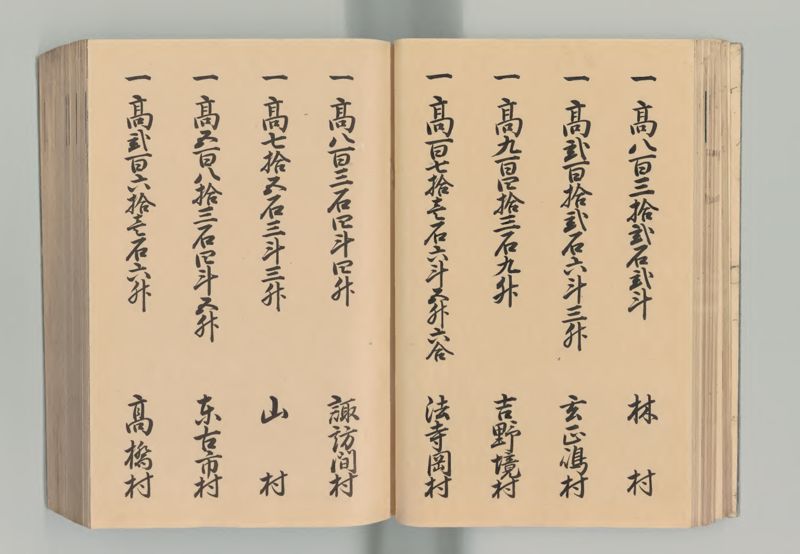 一 高八百三拾弐石弐斗 林村
一 高弐百拾弐石六斗三升 玄正嶋村
一 高九百四拾三石九升 吉野境村
一 高百七拾壱石六斗五升六合 法寺岡村
一 高八百三石四斗四升 諏訪間村
一 高七拾五石三斗三升 山村
一 高五百八拾三石四斗五升 东古市村
一 高弐百六拾壱石六升 高橋村